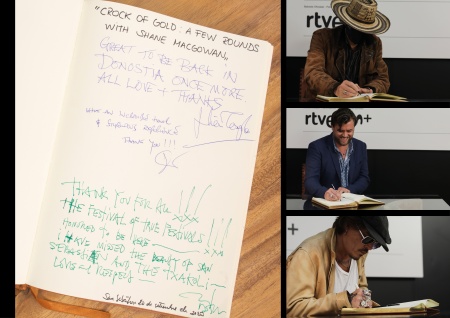 "CROCK OF GOLD: A FEW ROUNDS
WITH SHANE MACGOWAN"
GREAT TO BE BACK IN
DONOSTIA ONCE MORE.
ALL LOVE + THANKS
WHAT AN
& 
THANK YOU!!!
THANK YOU FOR ALL !!!
THE FESTIVAL OF THE FESTIVALS !!!
HONORED TO BE HERE
I HAVE MISSED THE BEAUTY OF SAN
SEBASTIAN AND THE TXAKOLI
LOVE & RESPECT
San Sebastián 20 de setiembre de 2020
rtve
rtve m+
+